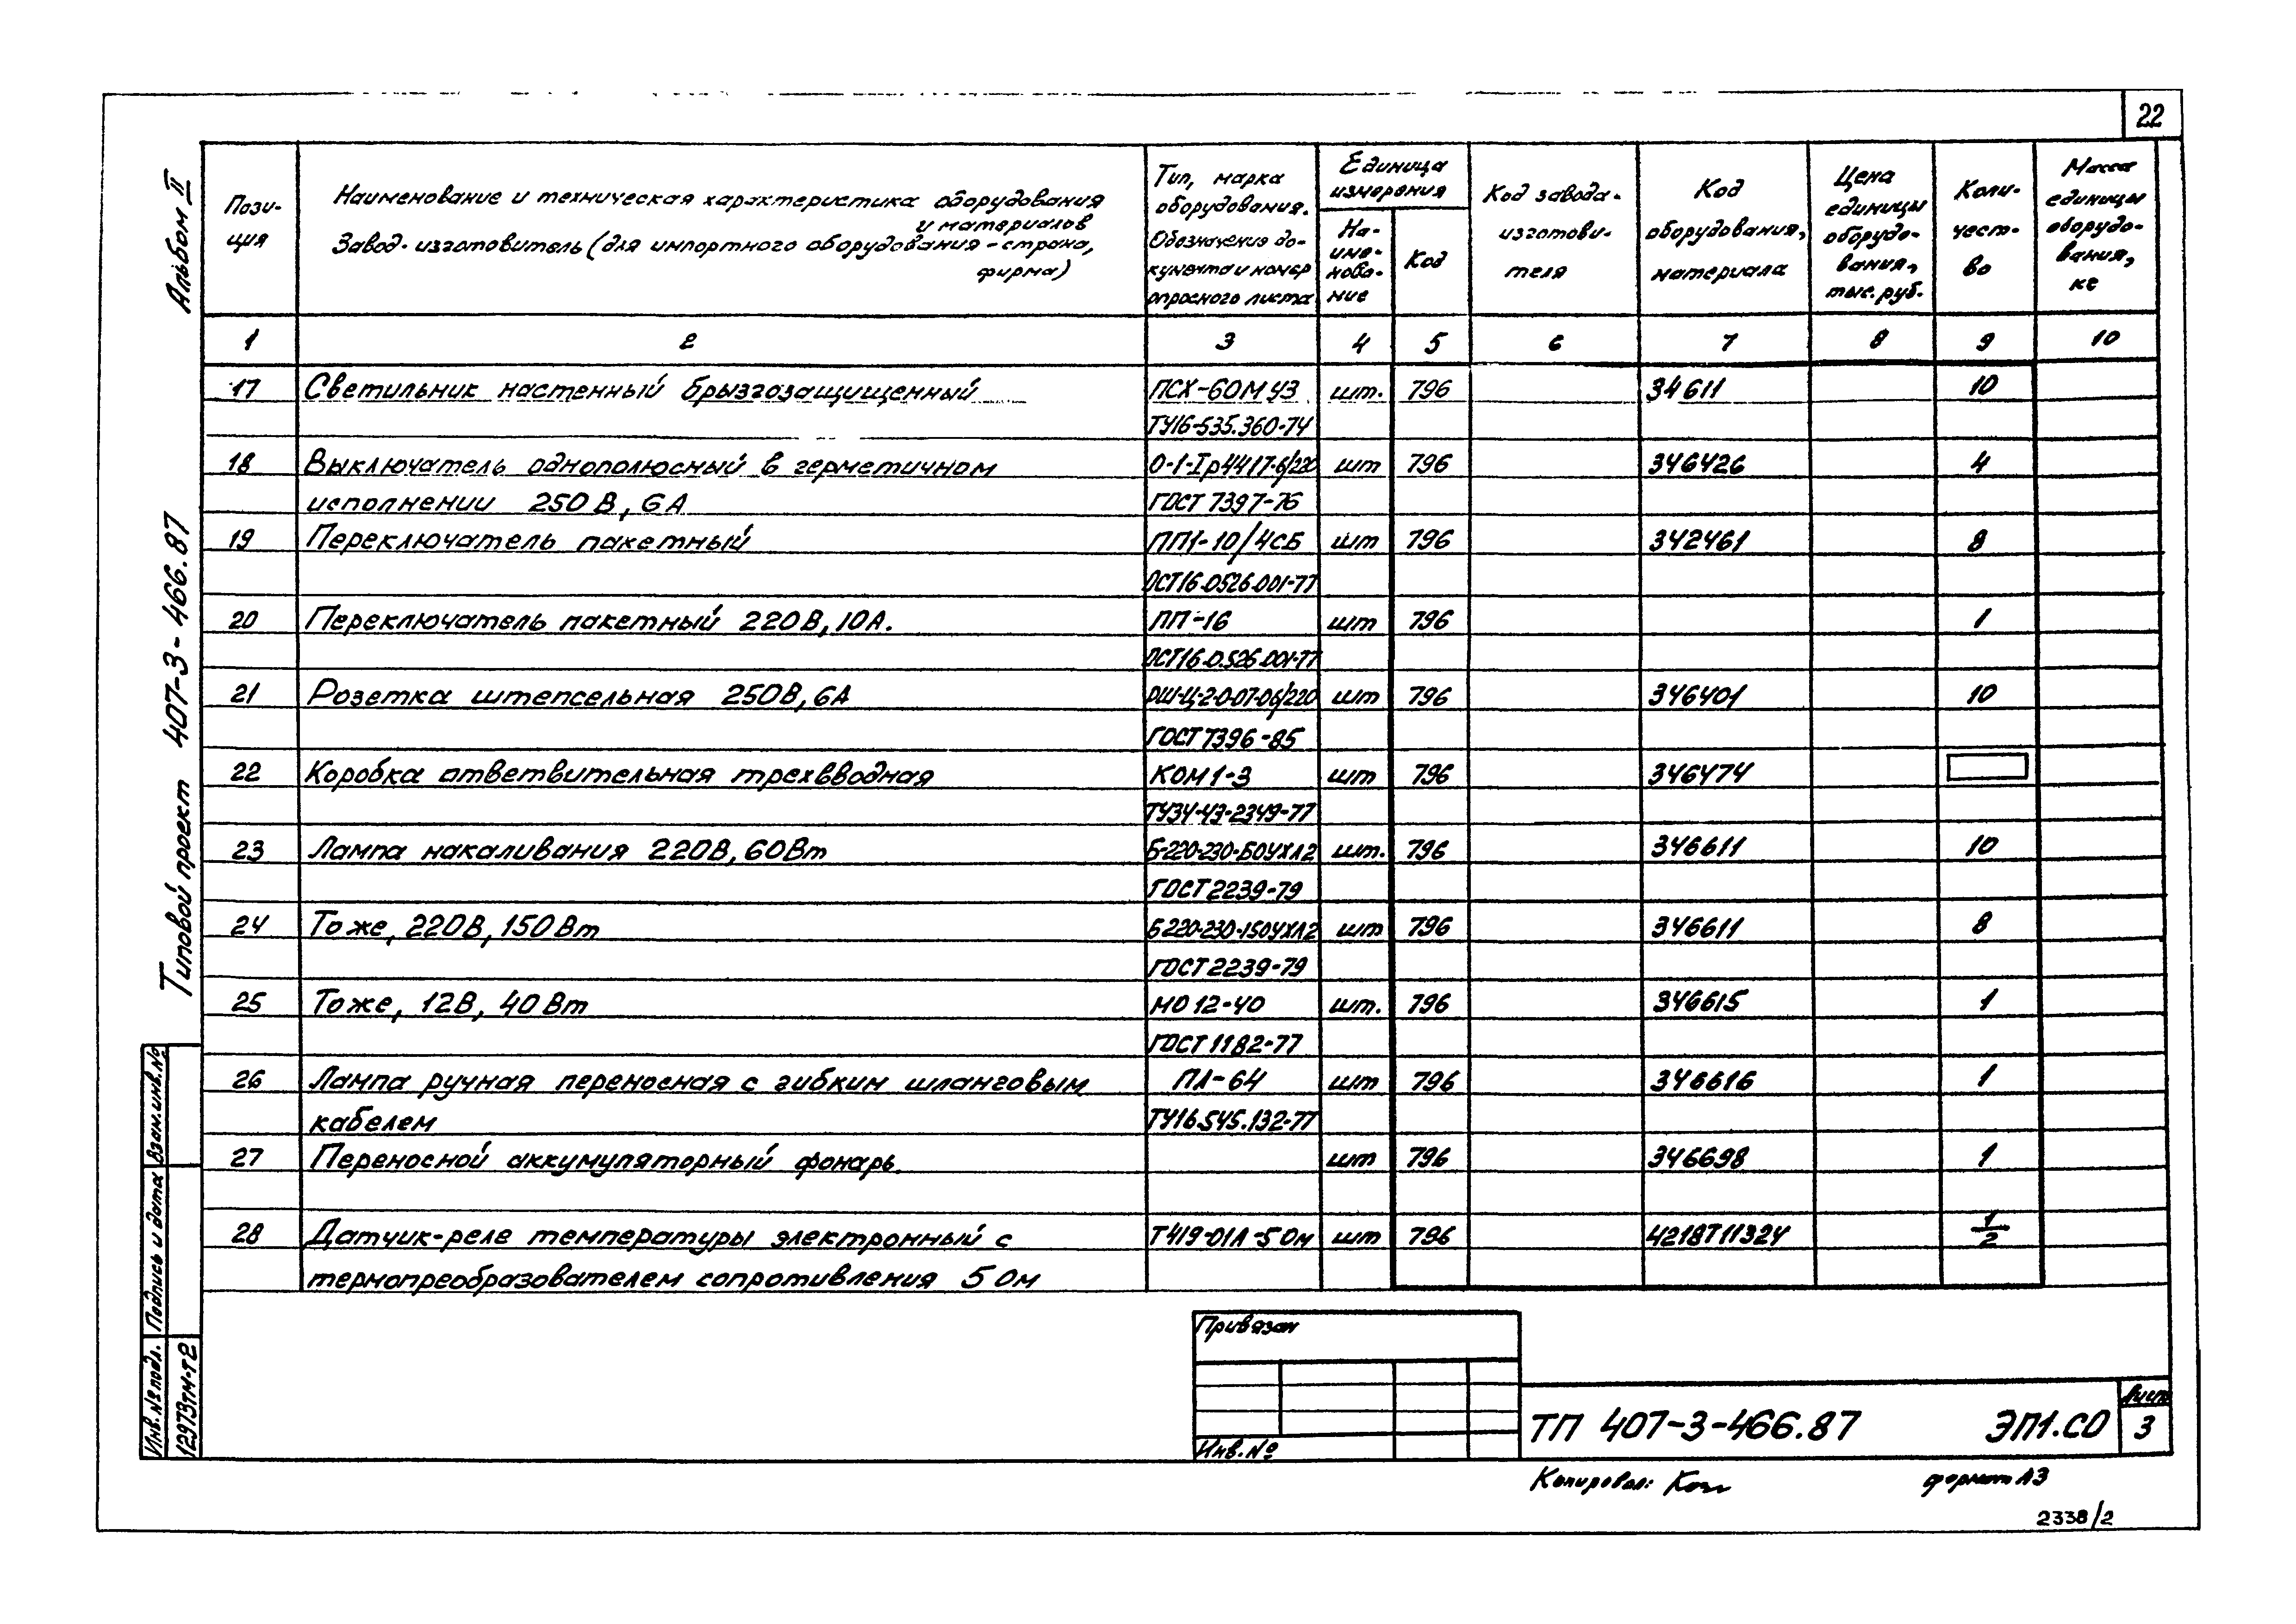 22
Пози-
ция
Наименование и техническая характеристика оборудования
и материалов
Завод-изготовитель (для импортного оборудования - страна,
фирма)
Тип, марка
оборудования.
Обозначение до-
кумента и номер
опросного листа
Единица
измерения
На-
име-
нова-
ние
Код
Код завода-
изготови-
теля
Код
оборудования,
материала
Цена
единицы
оборудо-
вания,
тыс. руб.
Коли-
чест-
во
Масса
единицы
оборудо-
вания,
кг
1 2 3 4 5 6 7 8 9 10
17 Светильник настенный брызгозащищенный ПСХ-60М У3 шт. 796 34611 10
ТУ16-535.360-74
18 Выключатель однополюсный в герметичном О-1-Iр44 17-6/220 шт 796 346426 4
исполнении 250 В, 6А ГОСТ 7397-76
19 Переключатель пакетный ПП1-10/4СБ шт 796 342461 8
ОСТ16.0526.001-77
20 Переключатель пакетный 220В, 10А. ПП-16 шт 796 1
ОСТ16.0.526.001-77
21 Розетка штепсельная 250В, 6А РШ-Ц-2-0-07-06/220 шт 796 346401 10
ГОСТ 7396-85
22 Коробка ответвительная трехвводная КОМ1-3 шт 796 346474
ТУ34-43-2349-77
23 Лампа накаливания 220В, 60Вт Б-220-230-60УХЛ2 шт. 796 346611 10
ГОСТ 2239-79
24 Тоже, 220В, 150Вт Б220-230-150УХЛ2 шт 796 346611 8
ГОСТ 2239-79
25 Тоже, 12В, 40Вт МО 12-40 шт. 796 346615 1
ГОСТ 1182-77
26 Лампа ручная переносная с гибким шланговым ПЛ-64 шт 796 346616 1
кабелем ТУ16.545.132-77
27 Переносной аккумуляторный фонарь. шт 796 346698 1
28 Датчик-реле температуры электронный с Т419-01Л-5 Ом шт 796 4218Т11324 1/2
термопреобразователем сопротивления 5 Ом
Альбом II
Типовой проект 407-3-466.87
Взам.инв.№
Подпись и дата
Инв.№ подл.
12973тм-т2
Привязан
Инв.№
ТП 407-3-466.87 ЭП1.СО
Лист
3
Копировал:
формат А3
2338/2